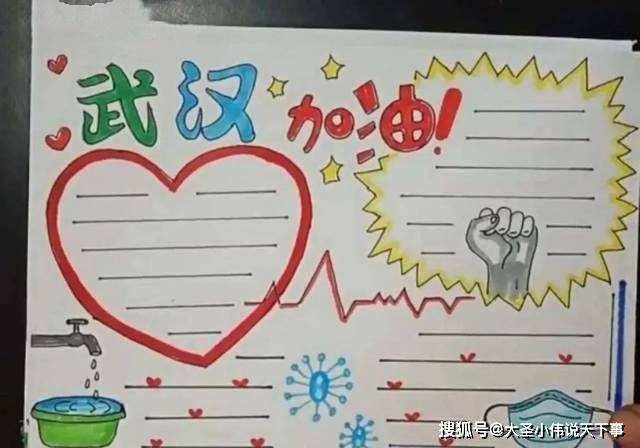 武汉加油!
搜狐号@大圣小伟说天下事